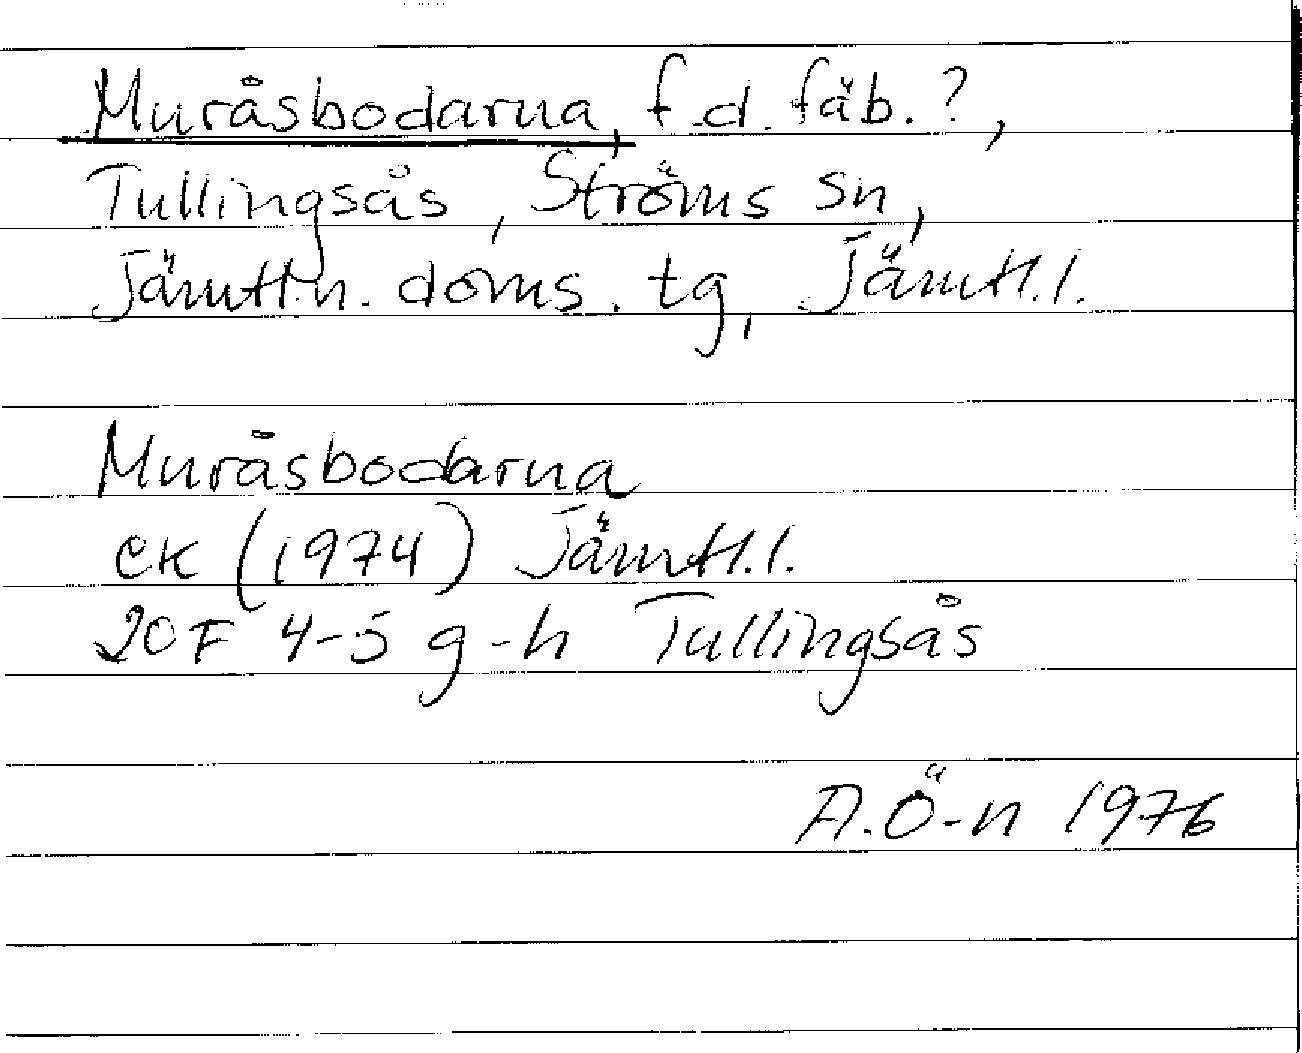 Muråsbodarna, f.d. fäb.?,
Tullingsås, Ströms sn,
Jämtl.n. doms. tg, Jämtl.l.
Muråsbodarna
ek (1974) Jämtl.l.
20F 4-5 g-h Tullingsås
A.Ö-n 1976